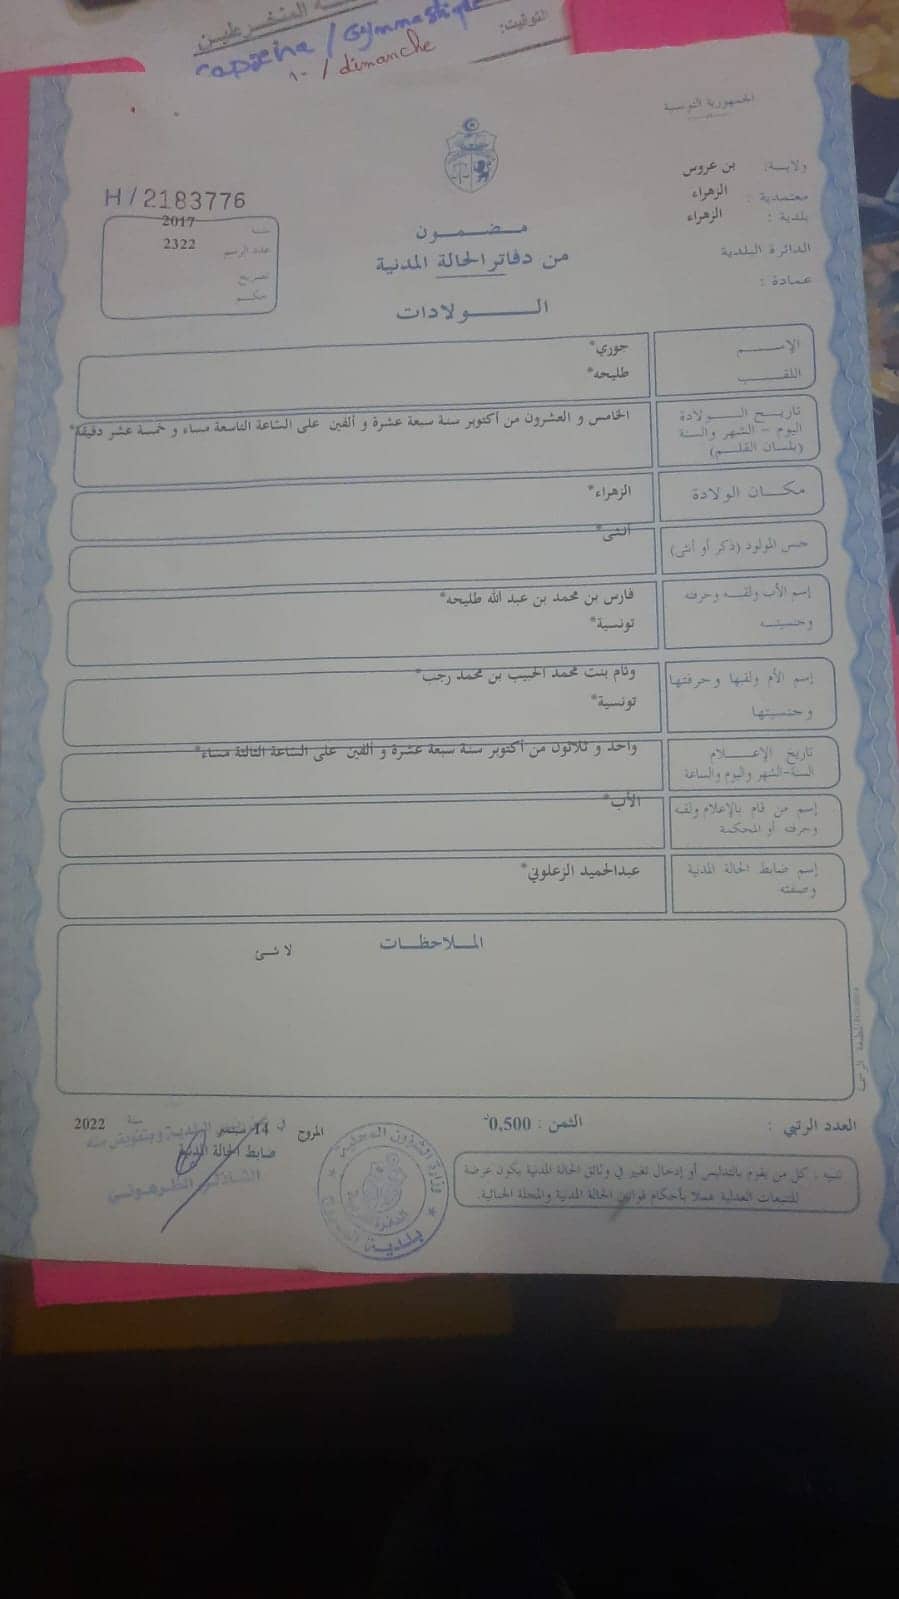 Gymnastique
/ dimanche
التوقيت:
الجمهورية التونسية
ولايـة: بن عروس
معتمدية : الزهراء
بلدية : الزهراء
الدائرة البلدية
عمادة :
H/2183776
سنة 2017
عدد الرسم 2322
تصريح
حكم
مضمون
من دفاتر الحالة المدنية
الولادات
الإسم جوري*
اللقب طليحه*
تاريخ الولادة
اليوم - الشهر والسنة
(بلسان القلم)
الخامس و العشرون من أكتوبر سنة سبعة عشرة و ألفين على الساعة التاسعة مساء و خمسة عشر دقيقة*
مكان الولادة الزهراء*
جنس المولود (ذكر أو أنثى) أنثى*
إسم الأب ولقبه وحرفته فارس بن محمد بن عبد الله طليحه*
وجنسيته تونسية*
إسم الأم ولقبها وحرفتها وئام بنت محمد الحبيب بن محمد رجب*
وجنسيتها تونسية*
تاريخ الإعلام
السنة-الشهر واليوم والساعة
واحد و ثلاثون من أكتوبر سنة سبعة عشرة و ألفين على الساعة الثالثة مساء*
إسم من قام بالإعلام ولقبه الأب*
وحرفته أو المحكمة
إسم ضابط الحالة المدنية عبدالحميد الزعلوني*
وصفته
الملاحظات
لا شئ
العدد الرتبي :
الثمن : 0,500
المروج في 14 سبتمبر سنة 2022
ضابط الحالة المدنية
تنبيه : كل من يقوم بالتدليس أو إدخال تغيير في وثائق الحالة المدنية يكون عرضة
للتتبعات العدلية عملا بأحكام قوانين الحالة المدنية والمجلة الجنائية.
وزارة الشؤون المحلية
بلدية المروج